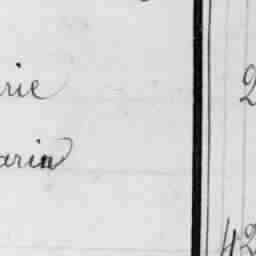 rie 2
aria
42